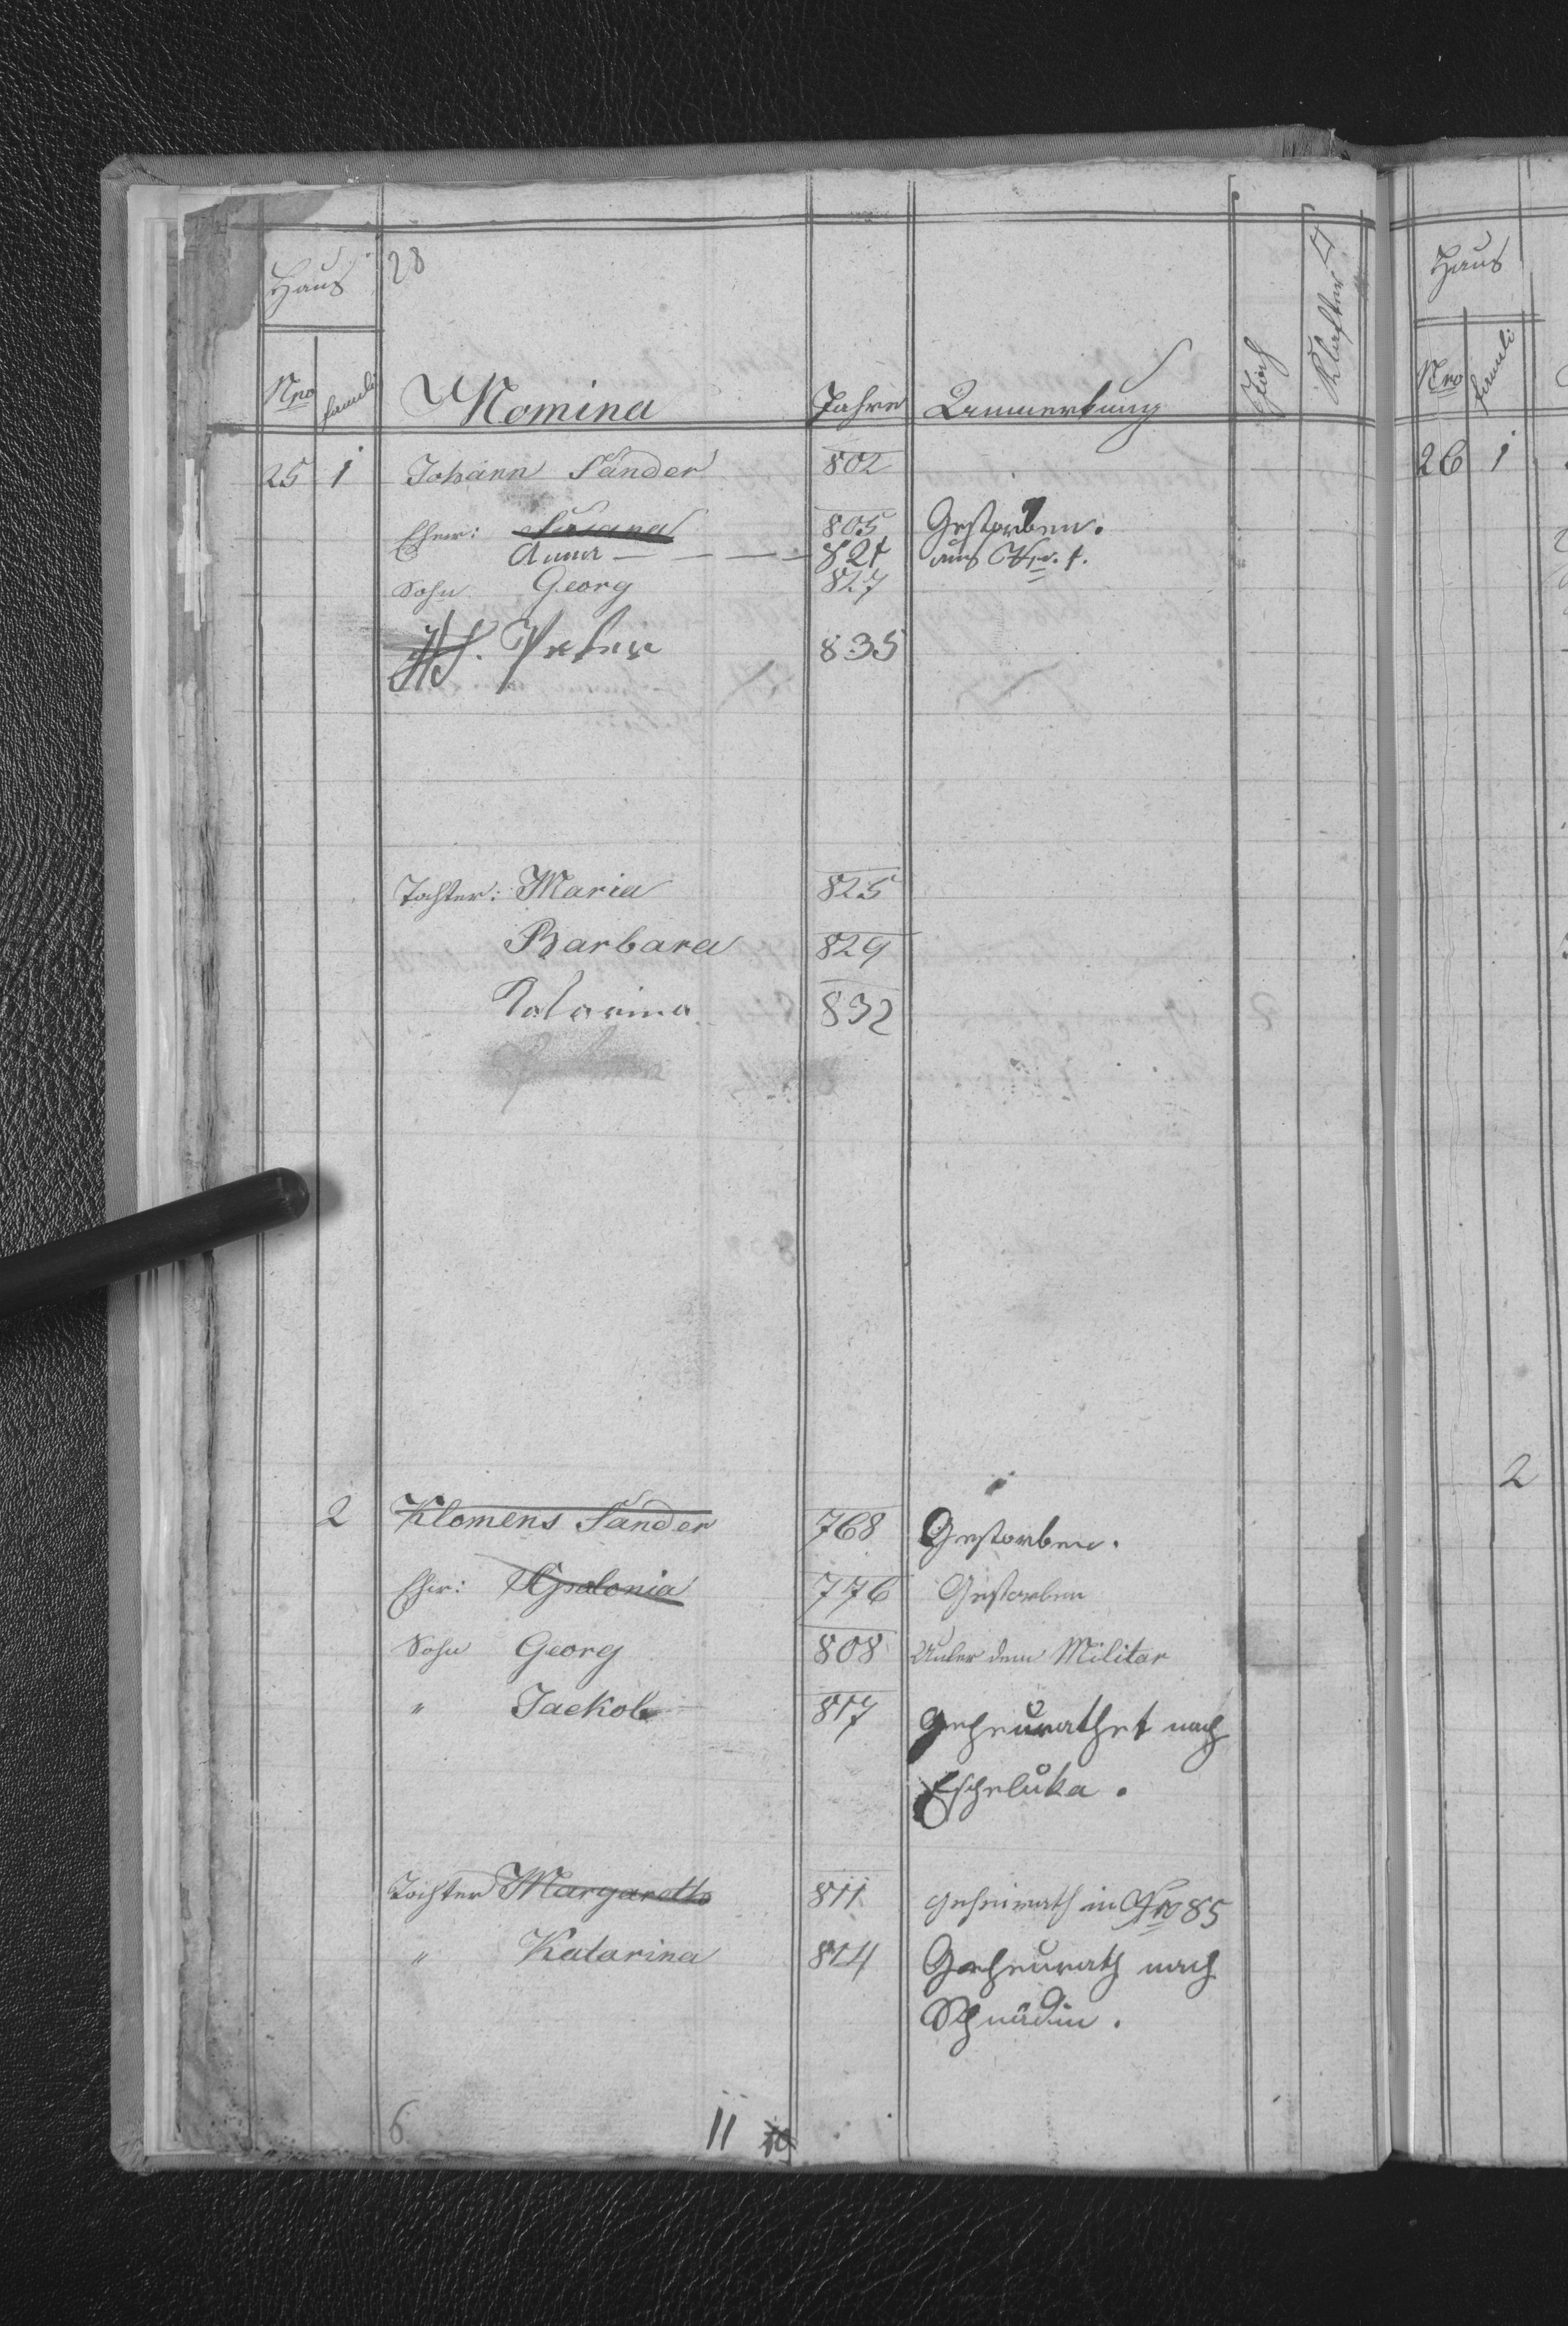 Haus
28
Nro famili Nomina Jahre Anmerkung Joch Klafter
25 1 Johann Sander 802
Ehew: Susana 805 Gestorben.
Anna — — — — 821 aus Nro. 1.
Sohn Georg 827
Peter 835
Tochter: Maria 825
Barbara 829
Catarina 832
2 Klemens Sander 768 Gestorben.
Ehew: Apalonia 776 Gestorben
Sohn Georg 808 Unter dem Militar
" Jackob 817 geheurathet nach
Escheluka.
Tochter Margaretta 811 geheirath in Nro 85
" Katarina 814 Geheurath nach
6 11 10
Haus
Nro famili
26 1
2